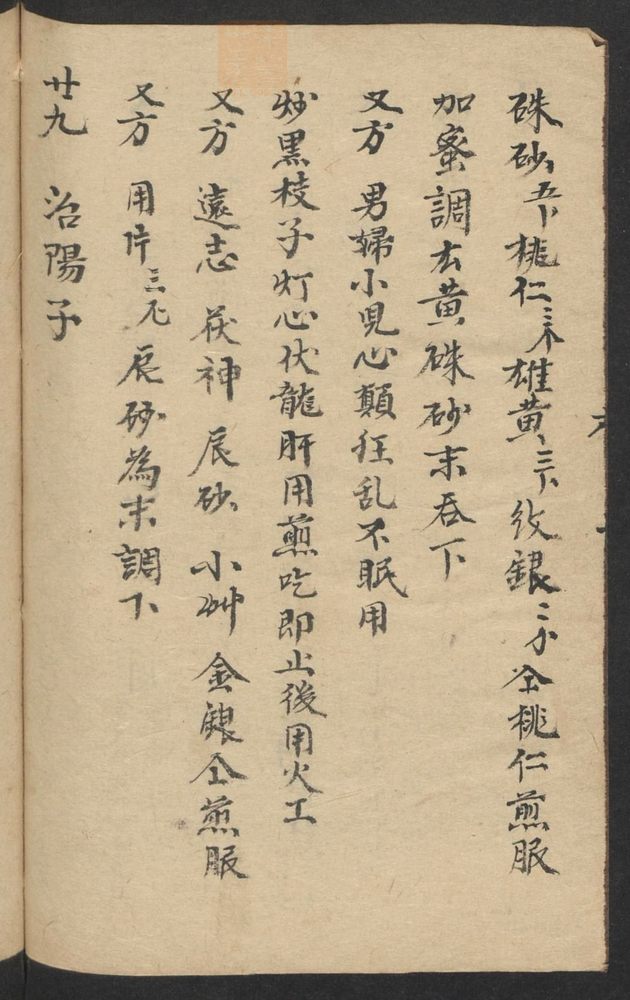 硃砂五下桃仁三不雄黄三下纹銀二分仝桃仁煎服
加蜜調玄黄硃砂末吞下
又方男婦小児心顛狂乱不眠用
炒黒枝子灯心伏龍肝用煎吃即止後用火工
又方遠志茯神辰砂小艸金銀仝煎服
又方用片三厘辰砂為末調下
廿九治陽子